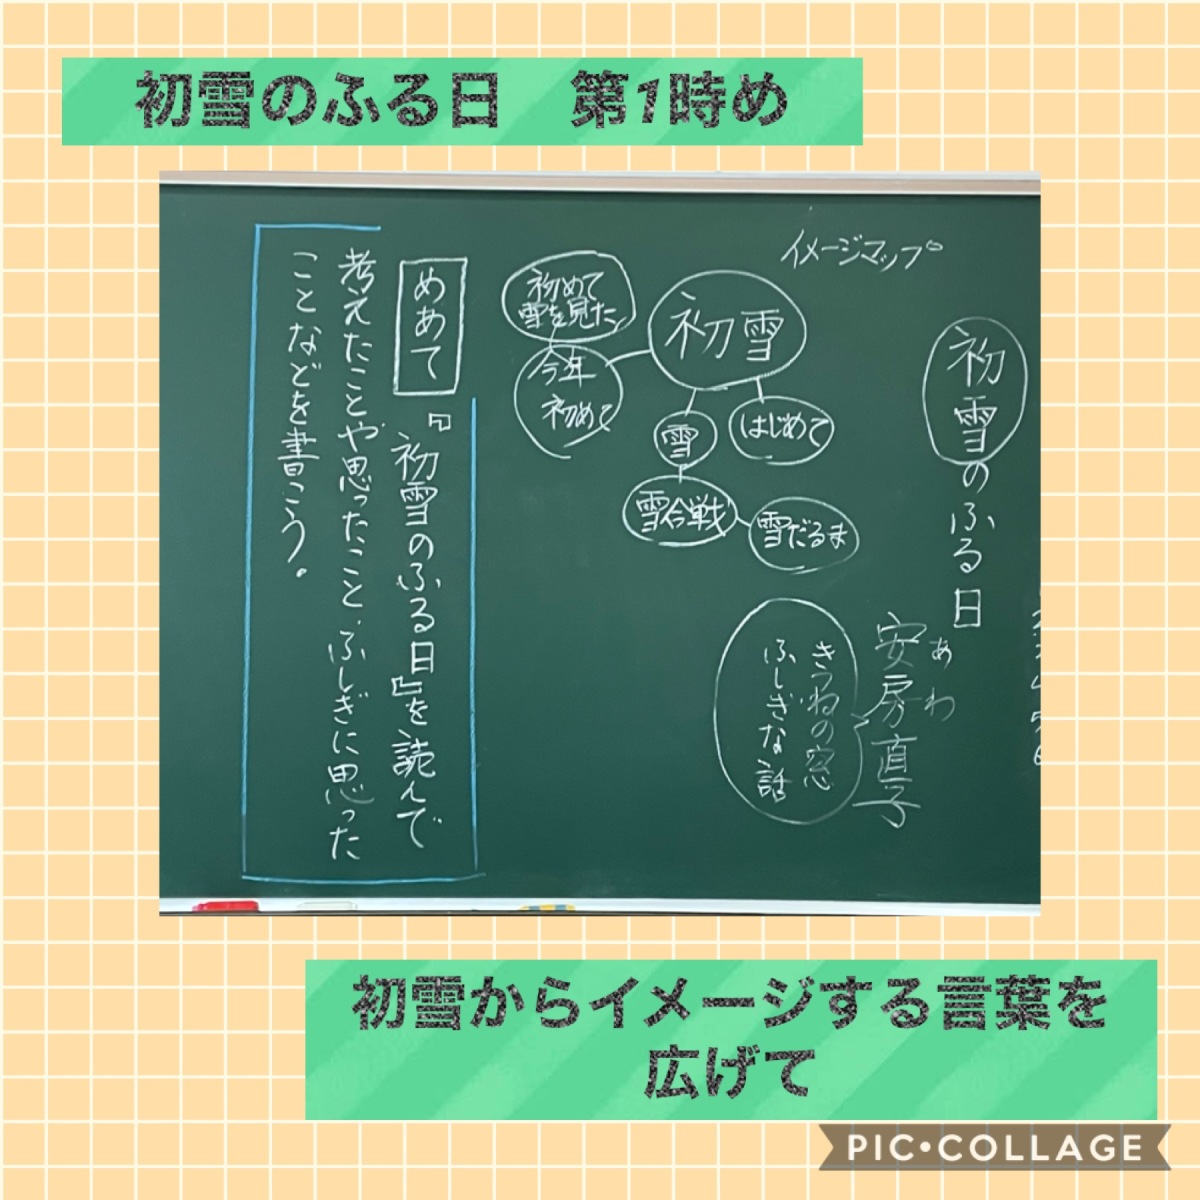 初雪のふる日　第1時め
初雪のふる日
安房直子
あわ
きつねの窓
ふしぎな話
イメージマップ
初雪
はじめて
雪
雪合戦
雪だるま
今年
初めて
初めて
雪を見た
めあて
『初雪のふる日』を読んで
考えたことや思ったこと、ふしぎに思った
ことなどを書こう。
初雪からイメージする言葉を
広げて
PIC•COLLAGE